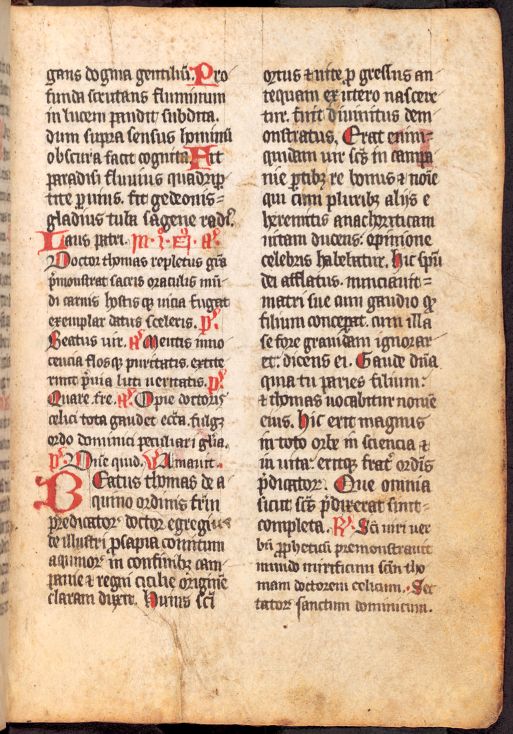 gans dogma gentiliū. Pro
funda scrutans fluminum
in lucem pandit subdita.
dum supra sensus hominū
obscura facit cognita. Fit
paradisi fluuius quadrip
tite puius. fit gedeonis
gladius tuba lagene radiꝰ.
Laus patri. In. i. a.
Doctor thomas repletus gr̄a
p̄monstrat sacris oraculis mū
di carnis hostis qꝫ uicia fugat
exemplar datus sceleris. pͣ.
Beatus uir. aͣ Mentis inno
cencia flosqꝫ puritatis. extite
runt p̄uia luci ueritatis. pͣ.
Quare. fre. aͣ. Opie doctoris
celici tota gaudet ecc̄a. fulgꝫ
ordo dominici peculiari gl̄ia.
pͣ. Dn̄e quid. V Amauit.
Beatus thomas de a
quino ordinis fr̄m
predicatoꝝ doctor egregius
de illustri ꝓsapia comitum
aquinoꝝ in confinibꝫ cam
panie ⁊ regni cicilie originē
claram duxit. Huius sc̄i
ortus ⁊ uite ꝓgressus an
tequam ex utero nascere
tur. fuit diuinitus dem
onstratus. Erat enim
quidam uir sc̄s in campa
nie ꝑtibꝫ re bonus ⁊ noīe
qui cum pluribꝫ alijs e
heremitis anachoriticam
uitam ducens. opinione
celebris habebatur. Hic spū
dei afflatus. nunciauit
matri sue cum gaudio qꝫ
filium conceperat. cum illa
se fore grauidam ignorar
et. dicens ei. Gaude dn̄a
quia tu paries filium.
⁊ thomas uocabitur nomē
eius. Hic erit magnus
in toto orbe in sciencia ⁊
in uita. eritqꝫ frat̄ ordīs
p̄dicatoꝝ. Que omnia
sicut sc̄s p̄dixerat sunt
completa. R. Sc̄i uiri uer
bū ꝓpheticū premonstrauit
mundo mirificum sc̄m tho
mam doctorem celicum. Sec
tatoꝝ sanctum dominicum.